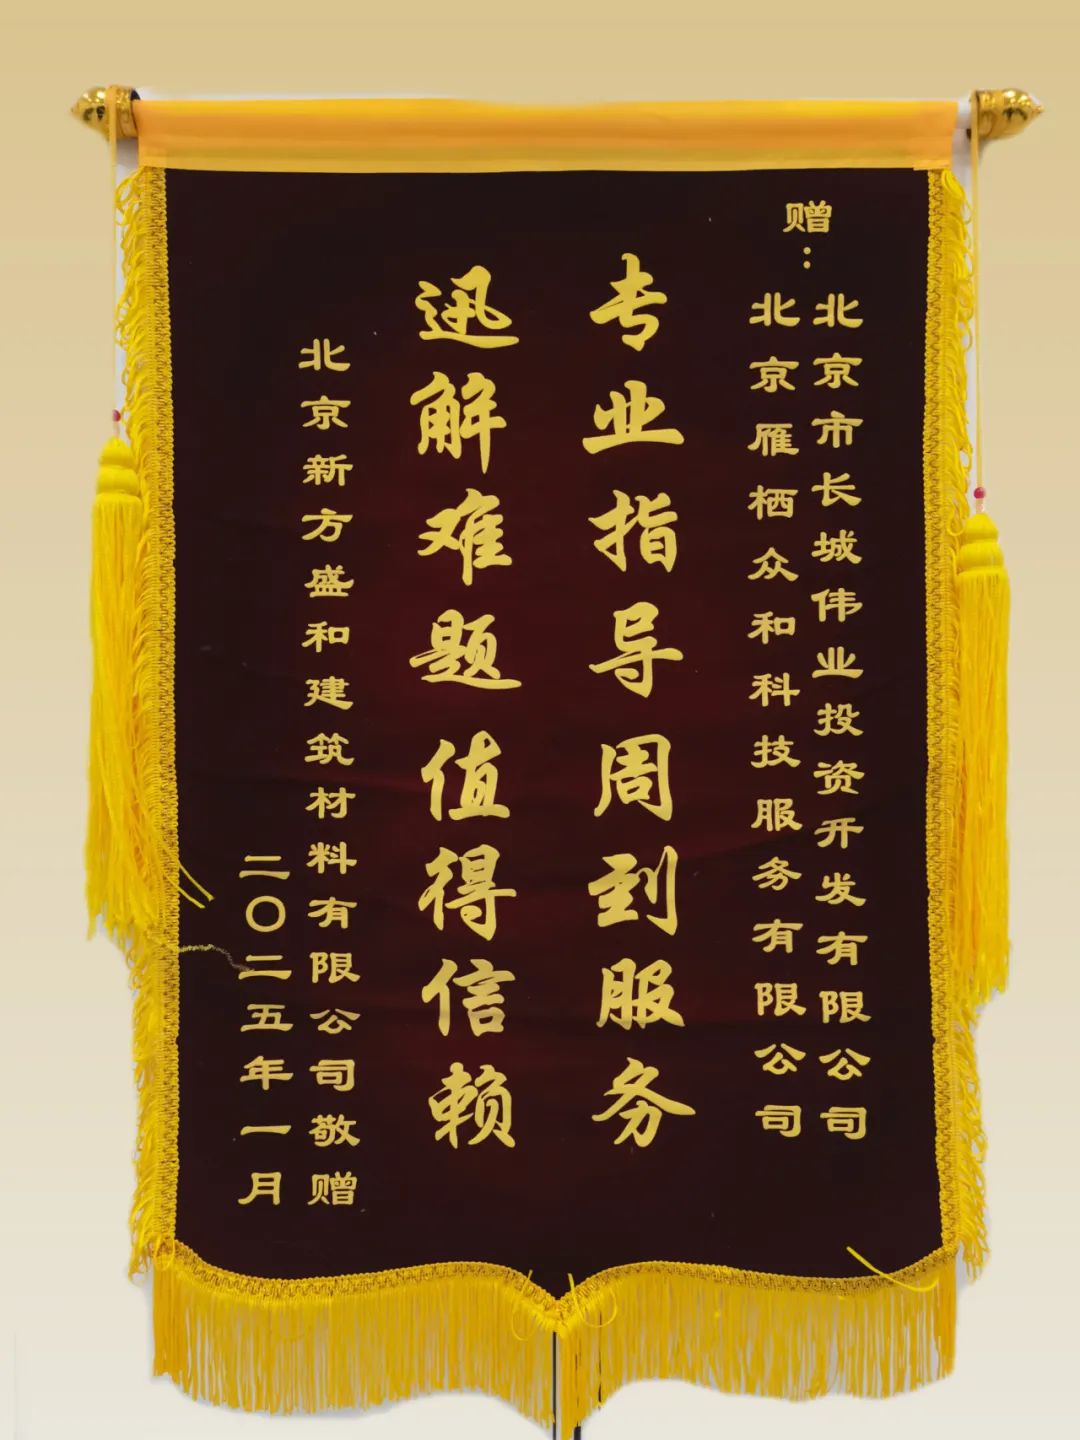 赠：
北京市长城伟业投资开发有限公司
北京雁栖众和科技服务有限公司
专业指导周到服务
迅解难题值得信赖
北京新方盛和建筑材料有限公司敬赠
二〇二五年一月